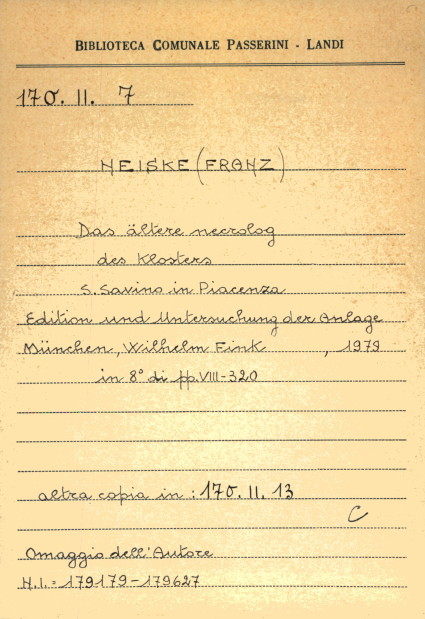 BIBLIOTECA COMUNALE PASSERINI - LANDI
170. II. 7
NEISKE (FRANZ)
Das ältere necrolog
des Klosters
S. Savino in Piacenza
Edition und Untersuchung der Anlage
München, Wilhelm Fink , 1979
in 8° di pp. VIII-320
altra copia in : 170. II. 13
C
Omaggio dell'Autore
N.I. = 179179-179627